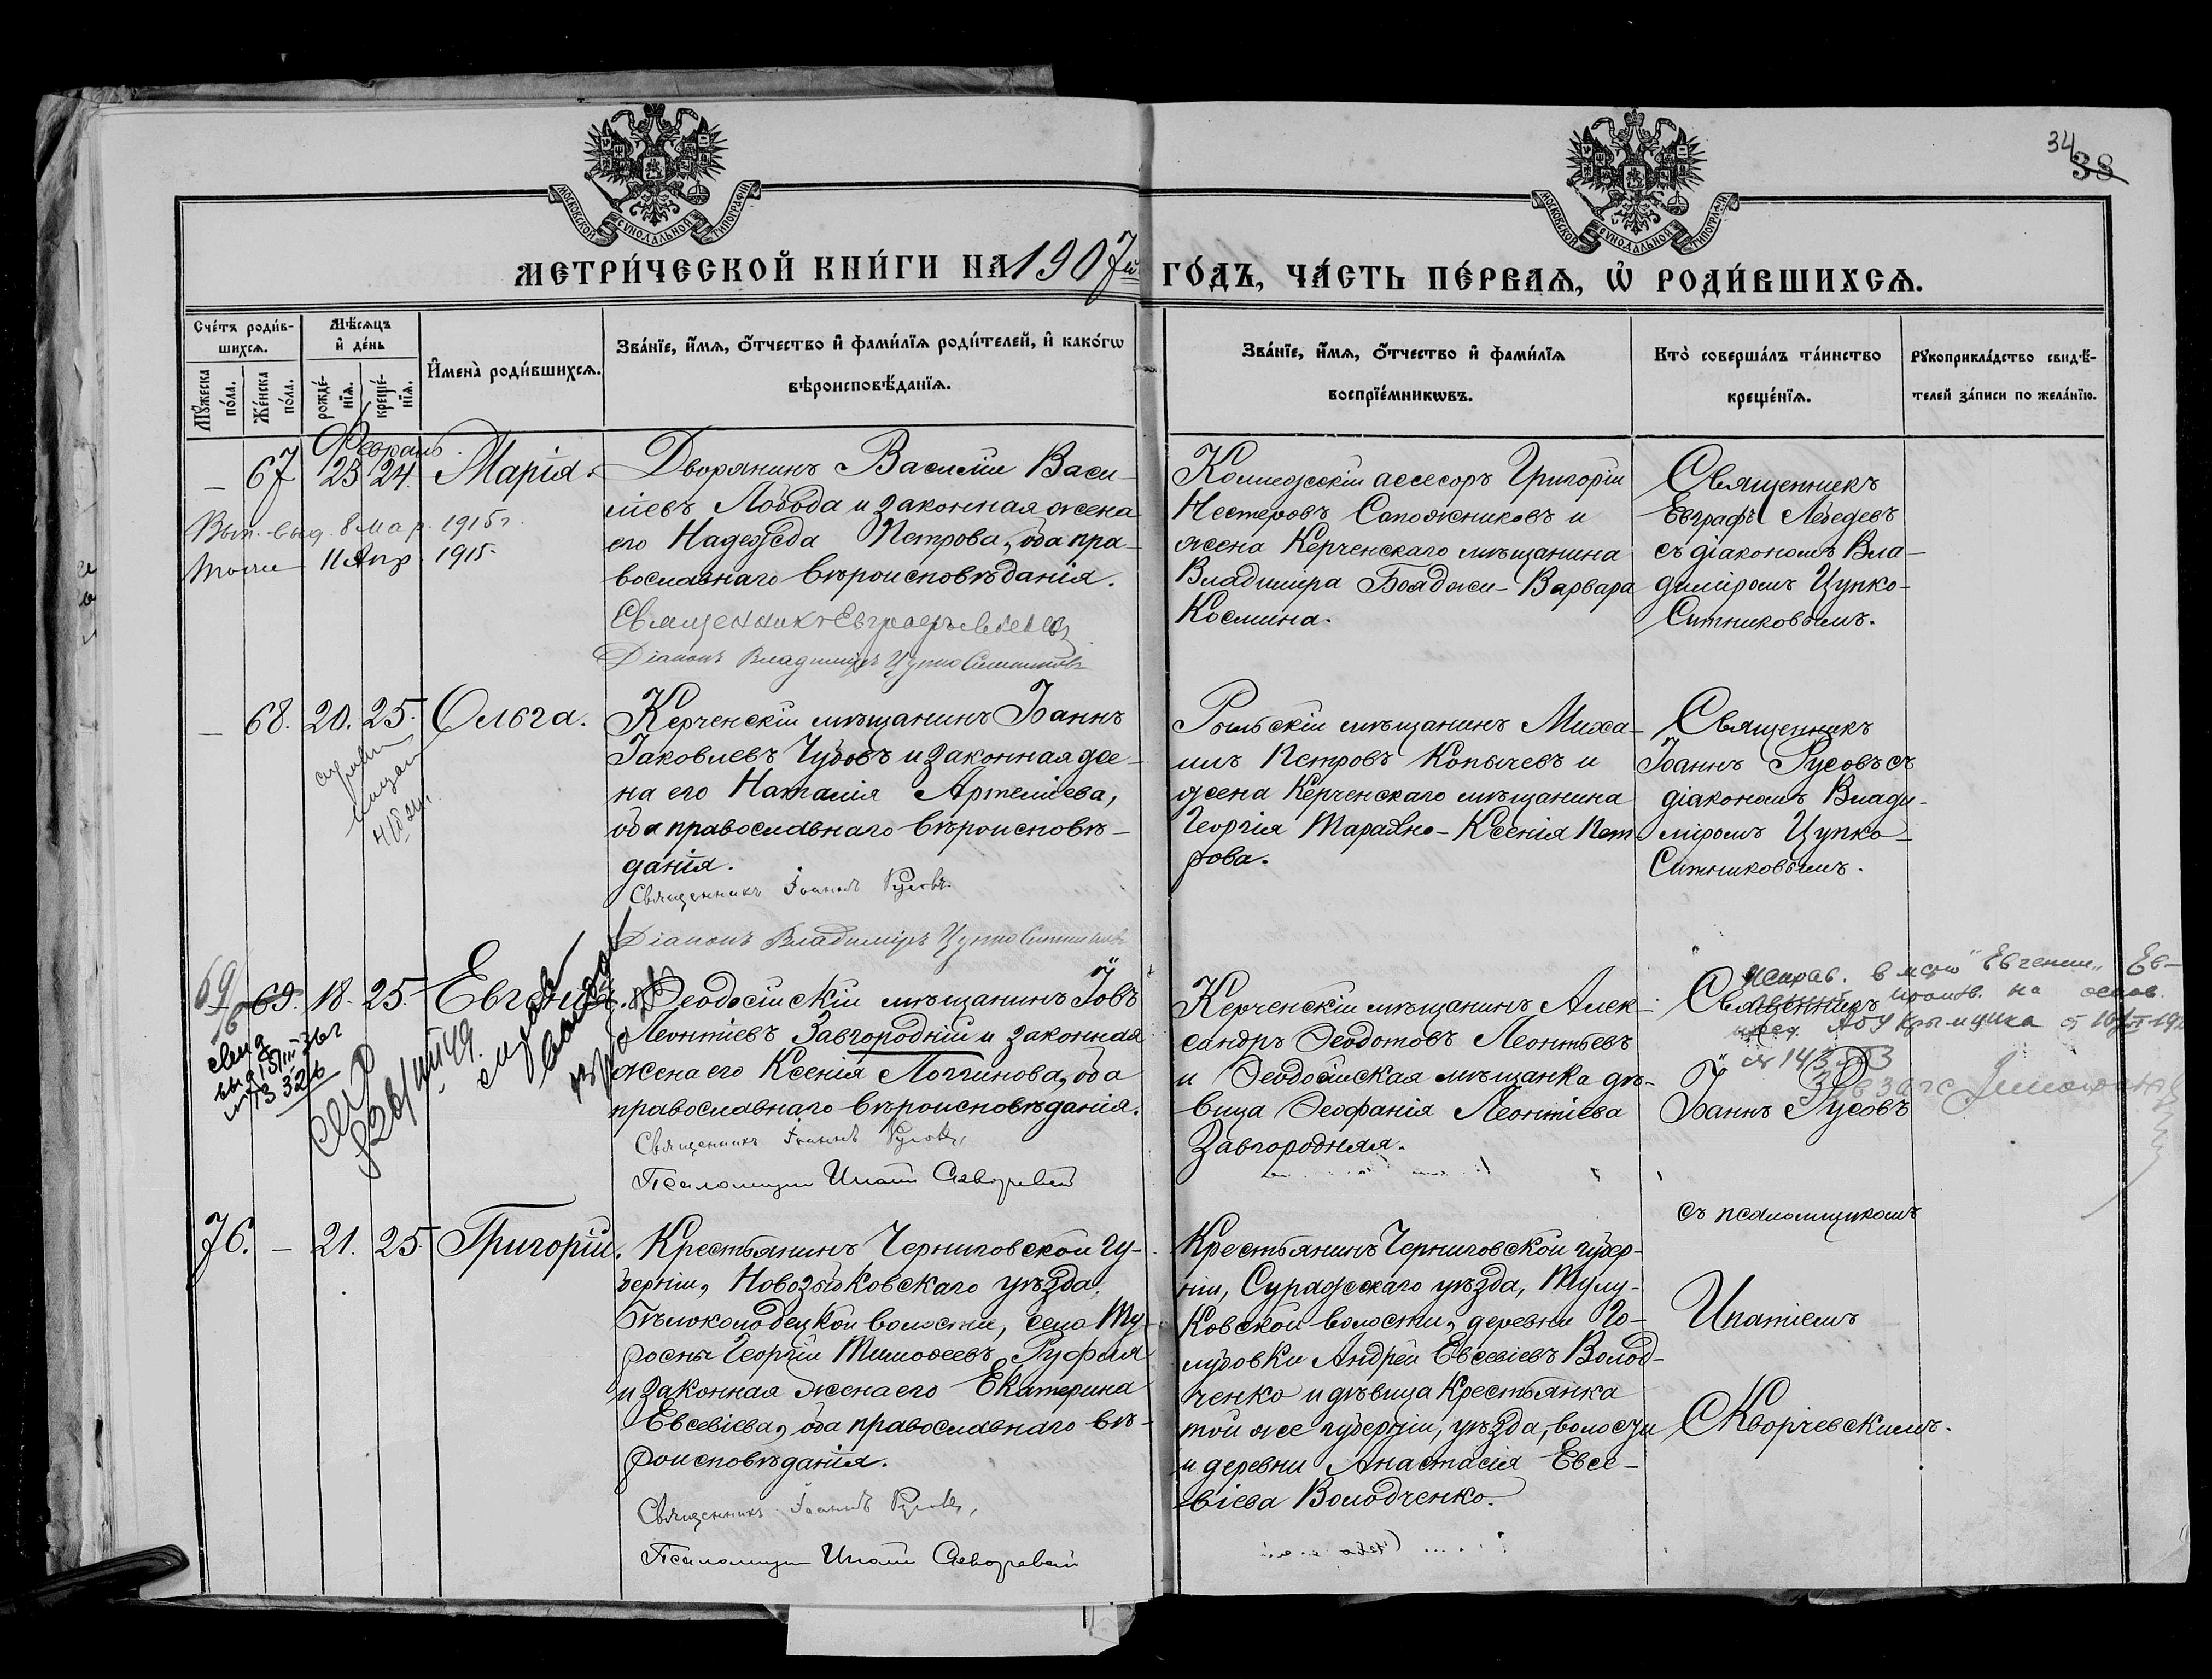 34
38
МОСКОВСКОЙ СУНОДАЛЬНОЙ ТИПОГРАФІИ
МОСКОВСКОЙ СУНОДАЛЬНОЙ ТИПОГРАФІИ
МЕТРИ́ЧЕСКОЙ КНИ́ГИ НА 1907й ГО́ДЪ, ЧА́СТЬ ПЕ́РВАѦ, Ѡ҆ РОДИ́ВШИХСѦ.
Сче́тъ роди́в-
шихсѧ.
Мѣ́сѧцъ
и҆ де́нь
Мꙋ́жеска
по́ла.
Же́нска
по́ла.
рожде́-
нїѧ.
креще́-
нїѧ.
И҆мена̀ роди́вшихсѧ.
Зва́нїе, и҆́мѧ, ѻ҆́тчество и҆ фами́лїѧ роди́телей, и҆ како́гѡ
вѣроисповѣ́данїѧ.
Зва́нїе, и҆́мѧ, ѻ҆́тчество и҆ фами́лїѧ
воспрїе́мникѡвъ.
Кто̀ соверша́лъ та́инство
креще́нїѧ.
Рꙋкоприкла́дство свидѣ́-
телей за́писи по жела́нїю.
Февраль
— 67 23 24. Марія.
Вып. выд. 8 мар. 1915 г.
Тоже 11 Апр. 1915
Дворянинъ Василій Васи-
ліевъ Лобода и законная жена
его Надежда Петрова, оба пра-
вославнаго вѣроисповѣданія.
Священникъ Евграфъ Лебедевъ
Діаконъ Владиміръ Цупко Ситниковъ
Коллежскій ассесоръ Григорій
Нестеровъ Сапожниковъ и
жена Керченскаго мѣщанина
Владиміра Бояджи - Варвара
Космина.
Священникъ
Евграфъ Лебедевъ
съ діакономъ Вла-
диміромъ Цупко-
Ситниковымъ.
— 68. 20. 25. Ольга.
Керченскій мѣщанинъ Іоаннъ
Іаковлевъ Чубовъ и законная же-
на его Наталія Артеміева,
оба православнаго вѣроисповѣ-
данія.
Священникъ Іоаннъ Русовъ.
Діаконъ Владиміръ Цупко Ситниковъ
Рыльскій мѣщанинъ Миха-
илъ Петровъ Копычевъ и
жена Керченскаго мѣщанина
Георгія - Ксенія Пет-
рова.
Священникъ
Іоаннъ Русовъ съ
діакономъ Влади-
міромъ Цупко-
Ситниковымъ.
69 69. 18. 25. Евгенія.
Ѳеодосійскій мѣщанинъ Іовъ
Леонтіевъ Завгородній и законная
жена его Ксенія Логгинова, оба
православнаго вѣроисповѣданія.
Священникъ Іоаннъ Русовъ,
Псаломщикъ Ипатій Скворчевскій
Керченскій мѣщанинъ Алек-
сандръ Ѳеодотовъ Леонтьевъ
и Ѳеодосійская мѣщанка дѣ-
вица Ѳеофанія Леонтіева
Завгородняя.
Исправ. вместо "Евгении" Ев-
Священникъ
Іоаннъ Русовъ
съ псаломщикомъ
Ипатіемъ
Скворчевскимъ.
76. — 21. 25. Григорій.
Крестьянинъ Черниговской гу-
берніи, Новозыбковскаго уѣзда,
Бѣлоколодецкой волости, села Ту-
росны Георгій Тимоѳеевъ Руфля
и законная жена его Екатерина
Евсевіева, оба православнаго вѣ-
роисповѣданія.
Священникъ Іоаннъ Русовъ,
Псаломщикъ Ипатій Скворчевскій
Крестьянинъ Черниговской губер-
ніи, Суражскаго уѣзда, Тулу-
ковской волости, деревни Го-
лубовки Андрей Евсевіевъ Волод-
ченко и дѣвица крестьянка
той же губерніи, уѣзда, волости
и деревни Анастасія Евсе-
віева Володченко.